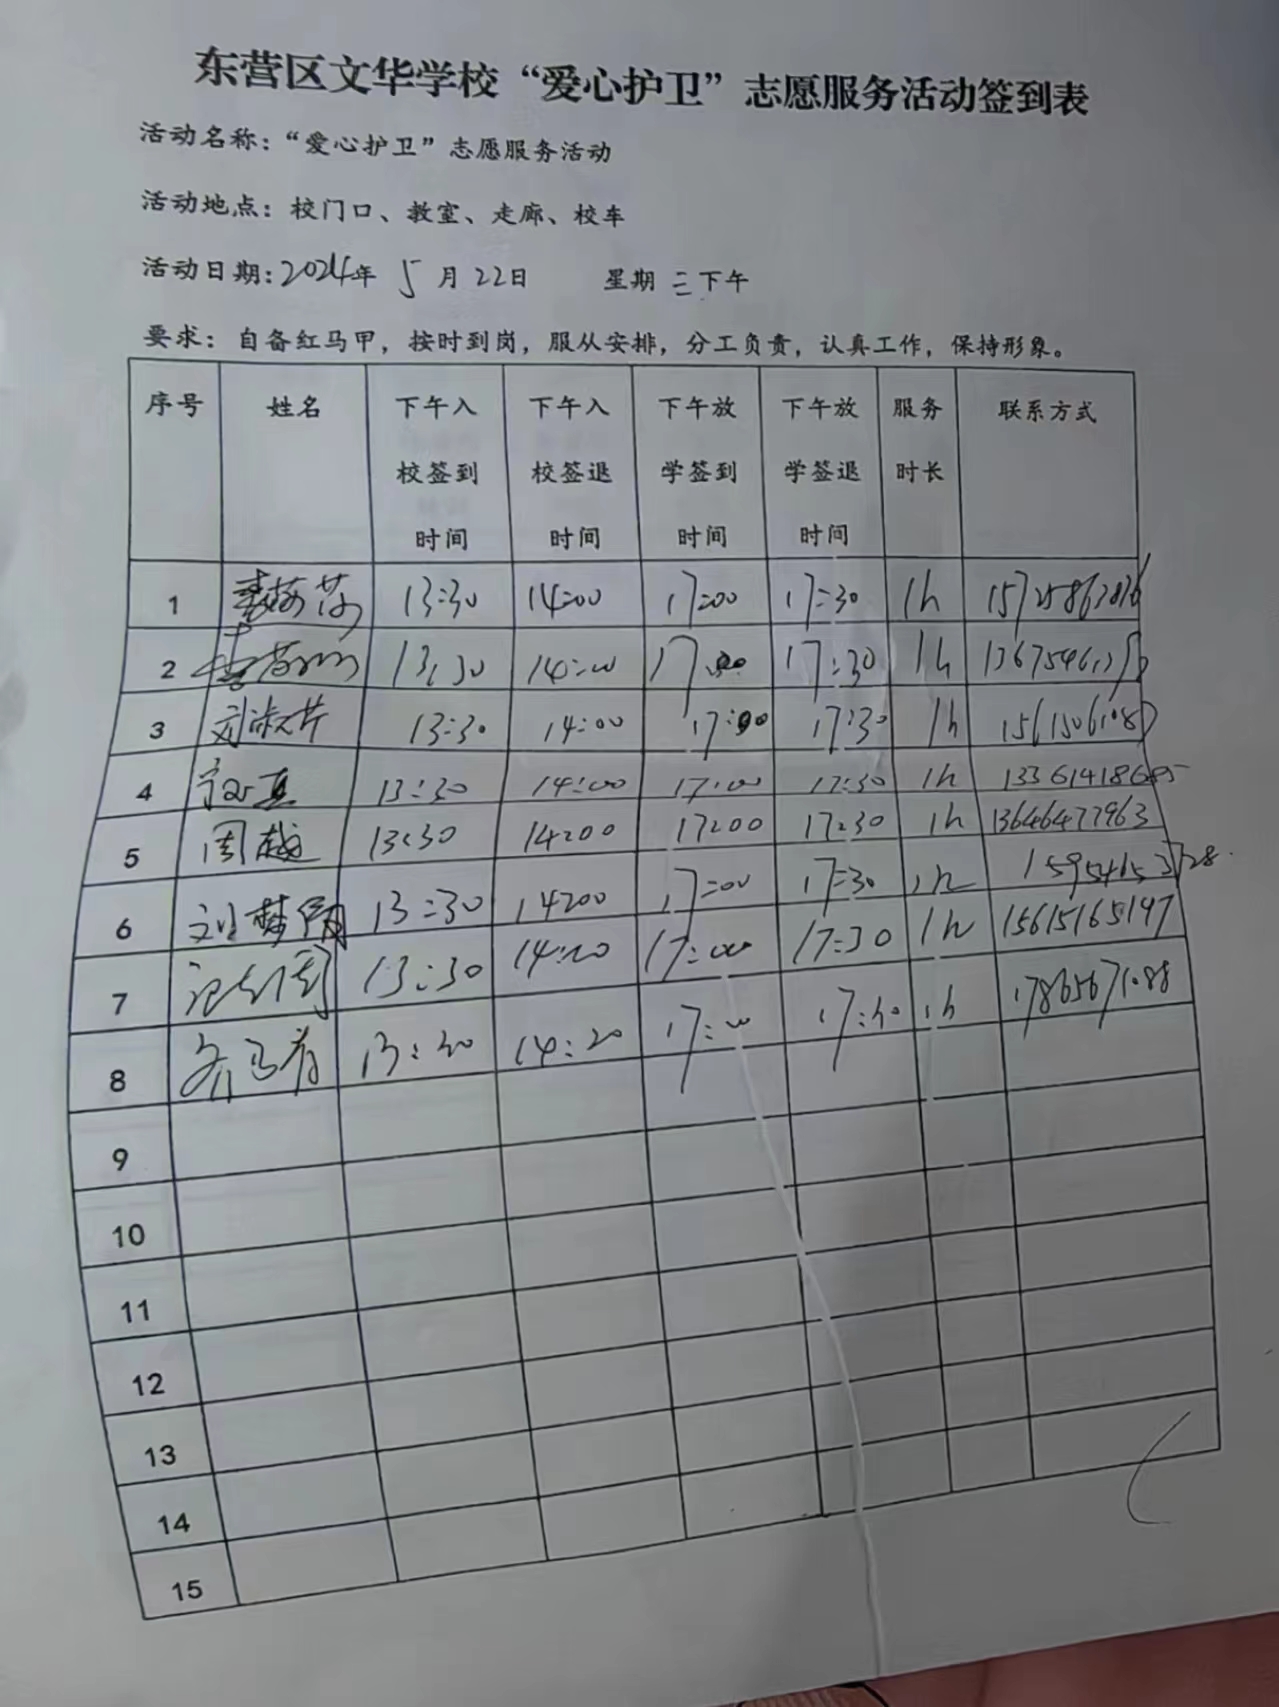 东营区文华学校“爱心护卫”志愿服务活动签到表
活动名称：“爱心护卫”志愿服务活动
活动地点：校门口、教室、走廊、校车
活动日期：2024年 5 月 22日 星期 三 下午
要求：自备红马甲，按时到岗，服从安排，分工负责，认真工作，保持形象。
序号 姓名 下午入校签到时间 下午入校签退时间 下午放学签到时间 下午放学签退时间 服务时长 联系方式
1 13:30 14:00 17:00 17:30 1h
2 13:30 14:00 17:00 17:30 1h
3 刘淑芹 13:30 14:00 17:00 17:30 1h
4 13:30 14:00 17:00 17:30 1h
5 周越 13:30 14:00 17:00 17:30 1h 13646477963
6 刘梦 13:30 14:00 17:00 17:30 1h
7 13:30 14:00 17:00 17:30 1h 15615165197
8 13:30 14:20 17:00 17:30 1h 17865671088
9
10
11
12
13
14
15